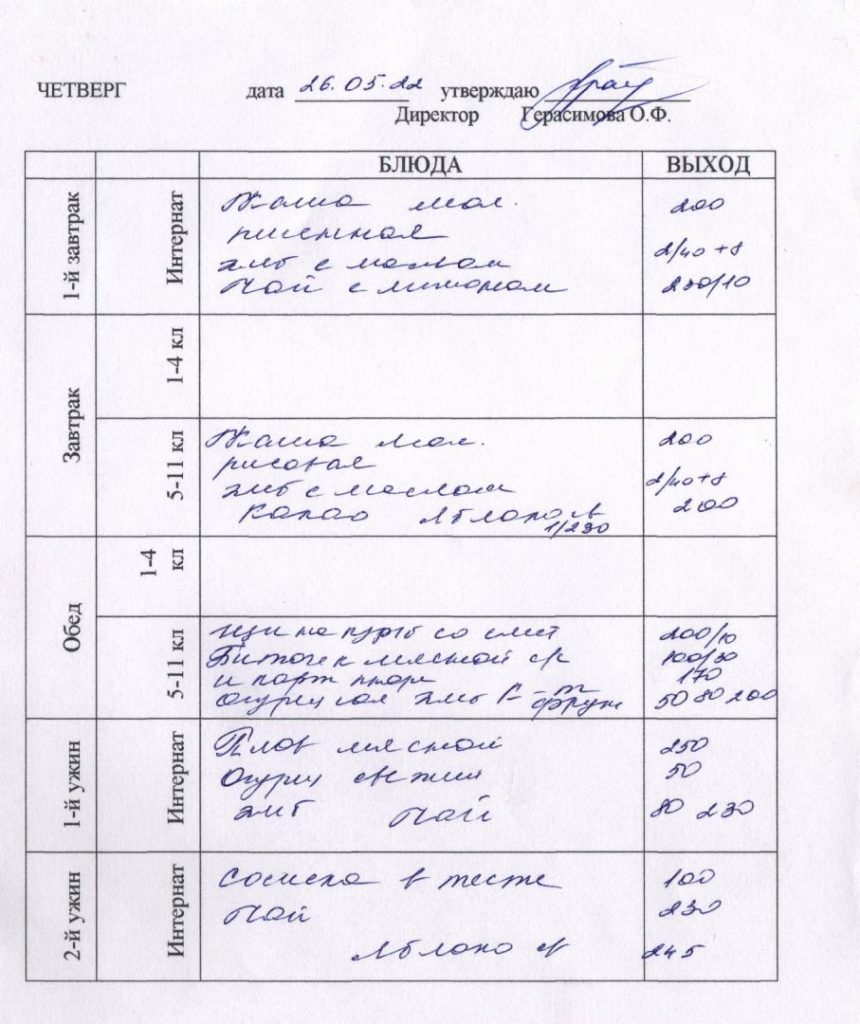 ЧЕТВЕРГ дата 26.05.22 утверждаю
Директор Герасимова О.Ф.
БЛЮДА ВЫХОД
1-й завтрак Интернат
Каша мол. 200
пшенная
хлеб с маслом 2/40+8
Чай с лимоном 200/10
Завтрак
1-4 кл
5-11 кл
Каша мол. 200
рисовая
хлеб с маслом 2/40+8
Какао Яблоко св 200
1/230
Обед
1-4 кл
5-11 кл
щи на курб со смет 200/10
Биточек мясной с/к 100/30
и карт пюре 170
Огурец сол хлеб К-т 50 80 200
фрукт
1-й ужин Интернат
Плов мясной 250
Огурец свежий 50
хлеб Чай 80 230
2-й ужин Интернат
Сосиска в тесте 100
Чай 230
Яблоко св 245